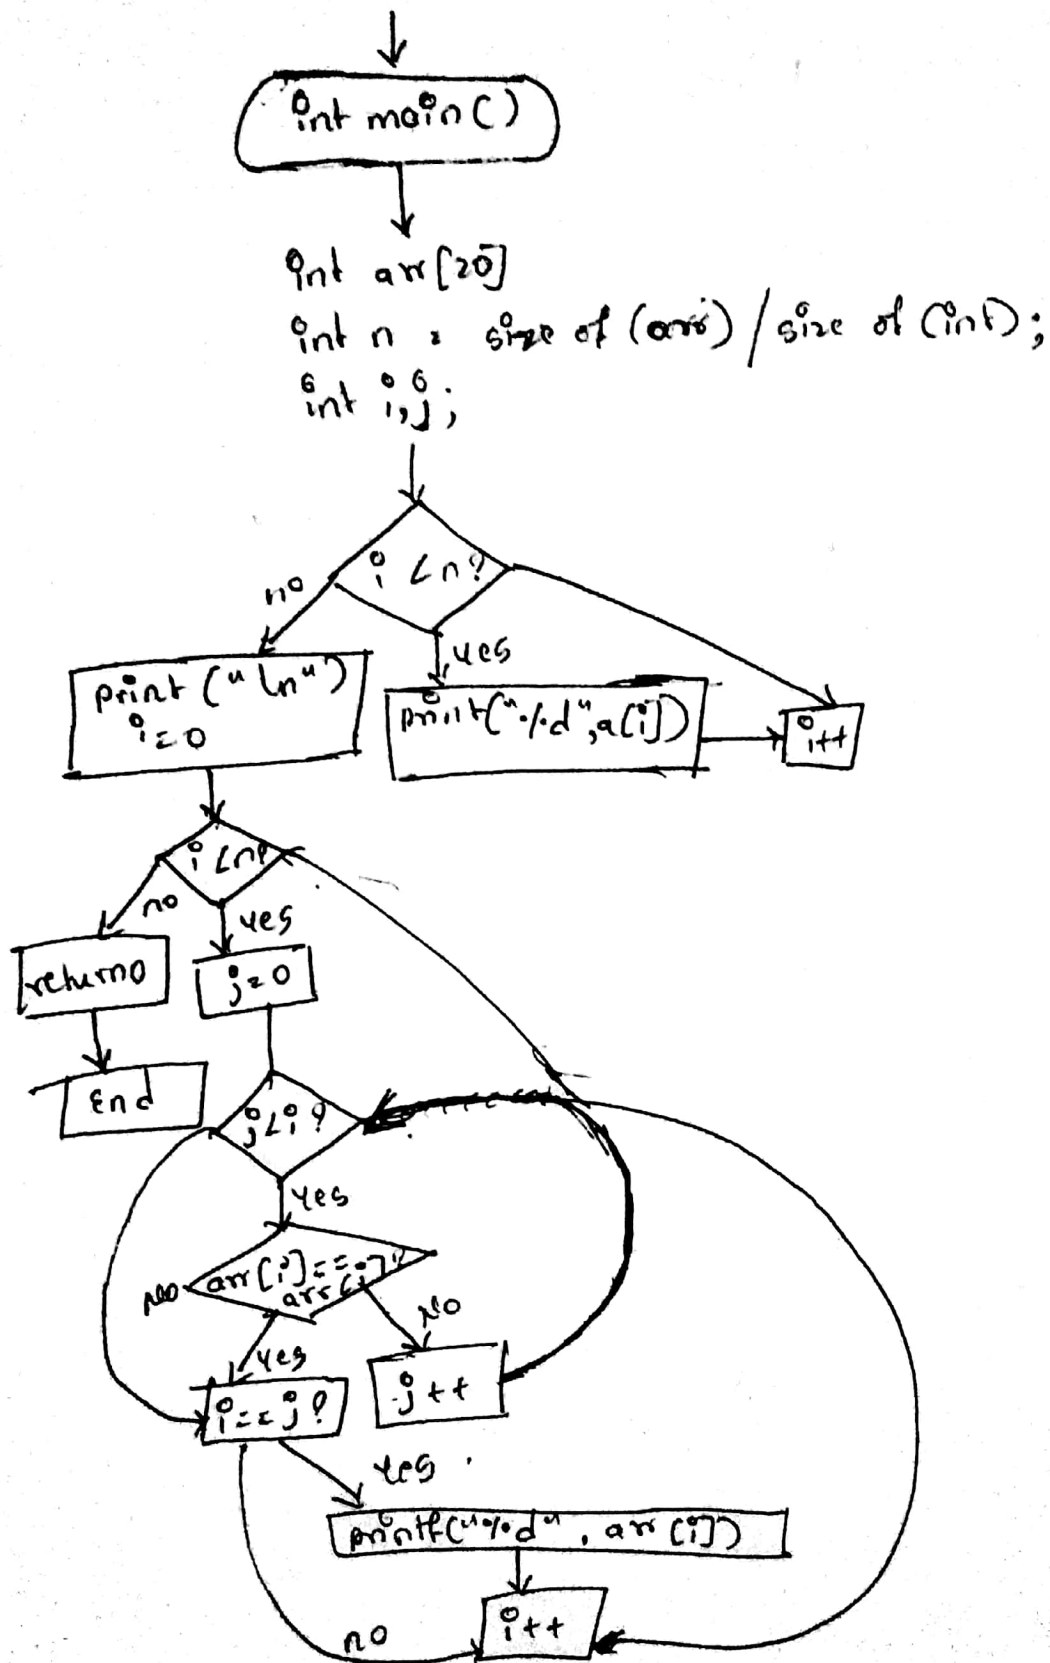 int main()
int arr[20]
int n = size of (arr) / size of (int);
int i,j;
i < n?
no
yes
print ("\n")
i=0
print("%d",a[i])
i++
i < n?
no
yes
return 0
j=0
End
j<i?
yes
No
arr[i]==
arr[j]?
No
yes
j++
i==j?
yes
printf("%d", arr[i])
i++
no